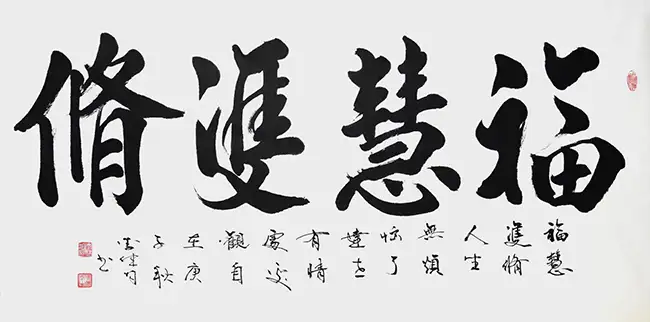 福慧雙脩
福慧
雙脩
人生
無煩
惱了
達
有情
處處
觀自
在庚
子秋
书